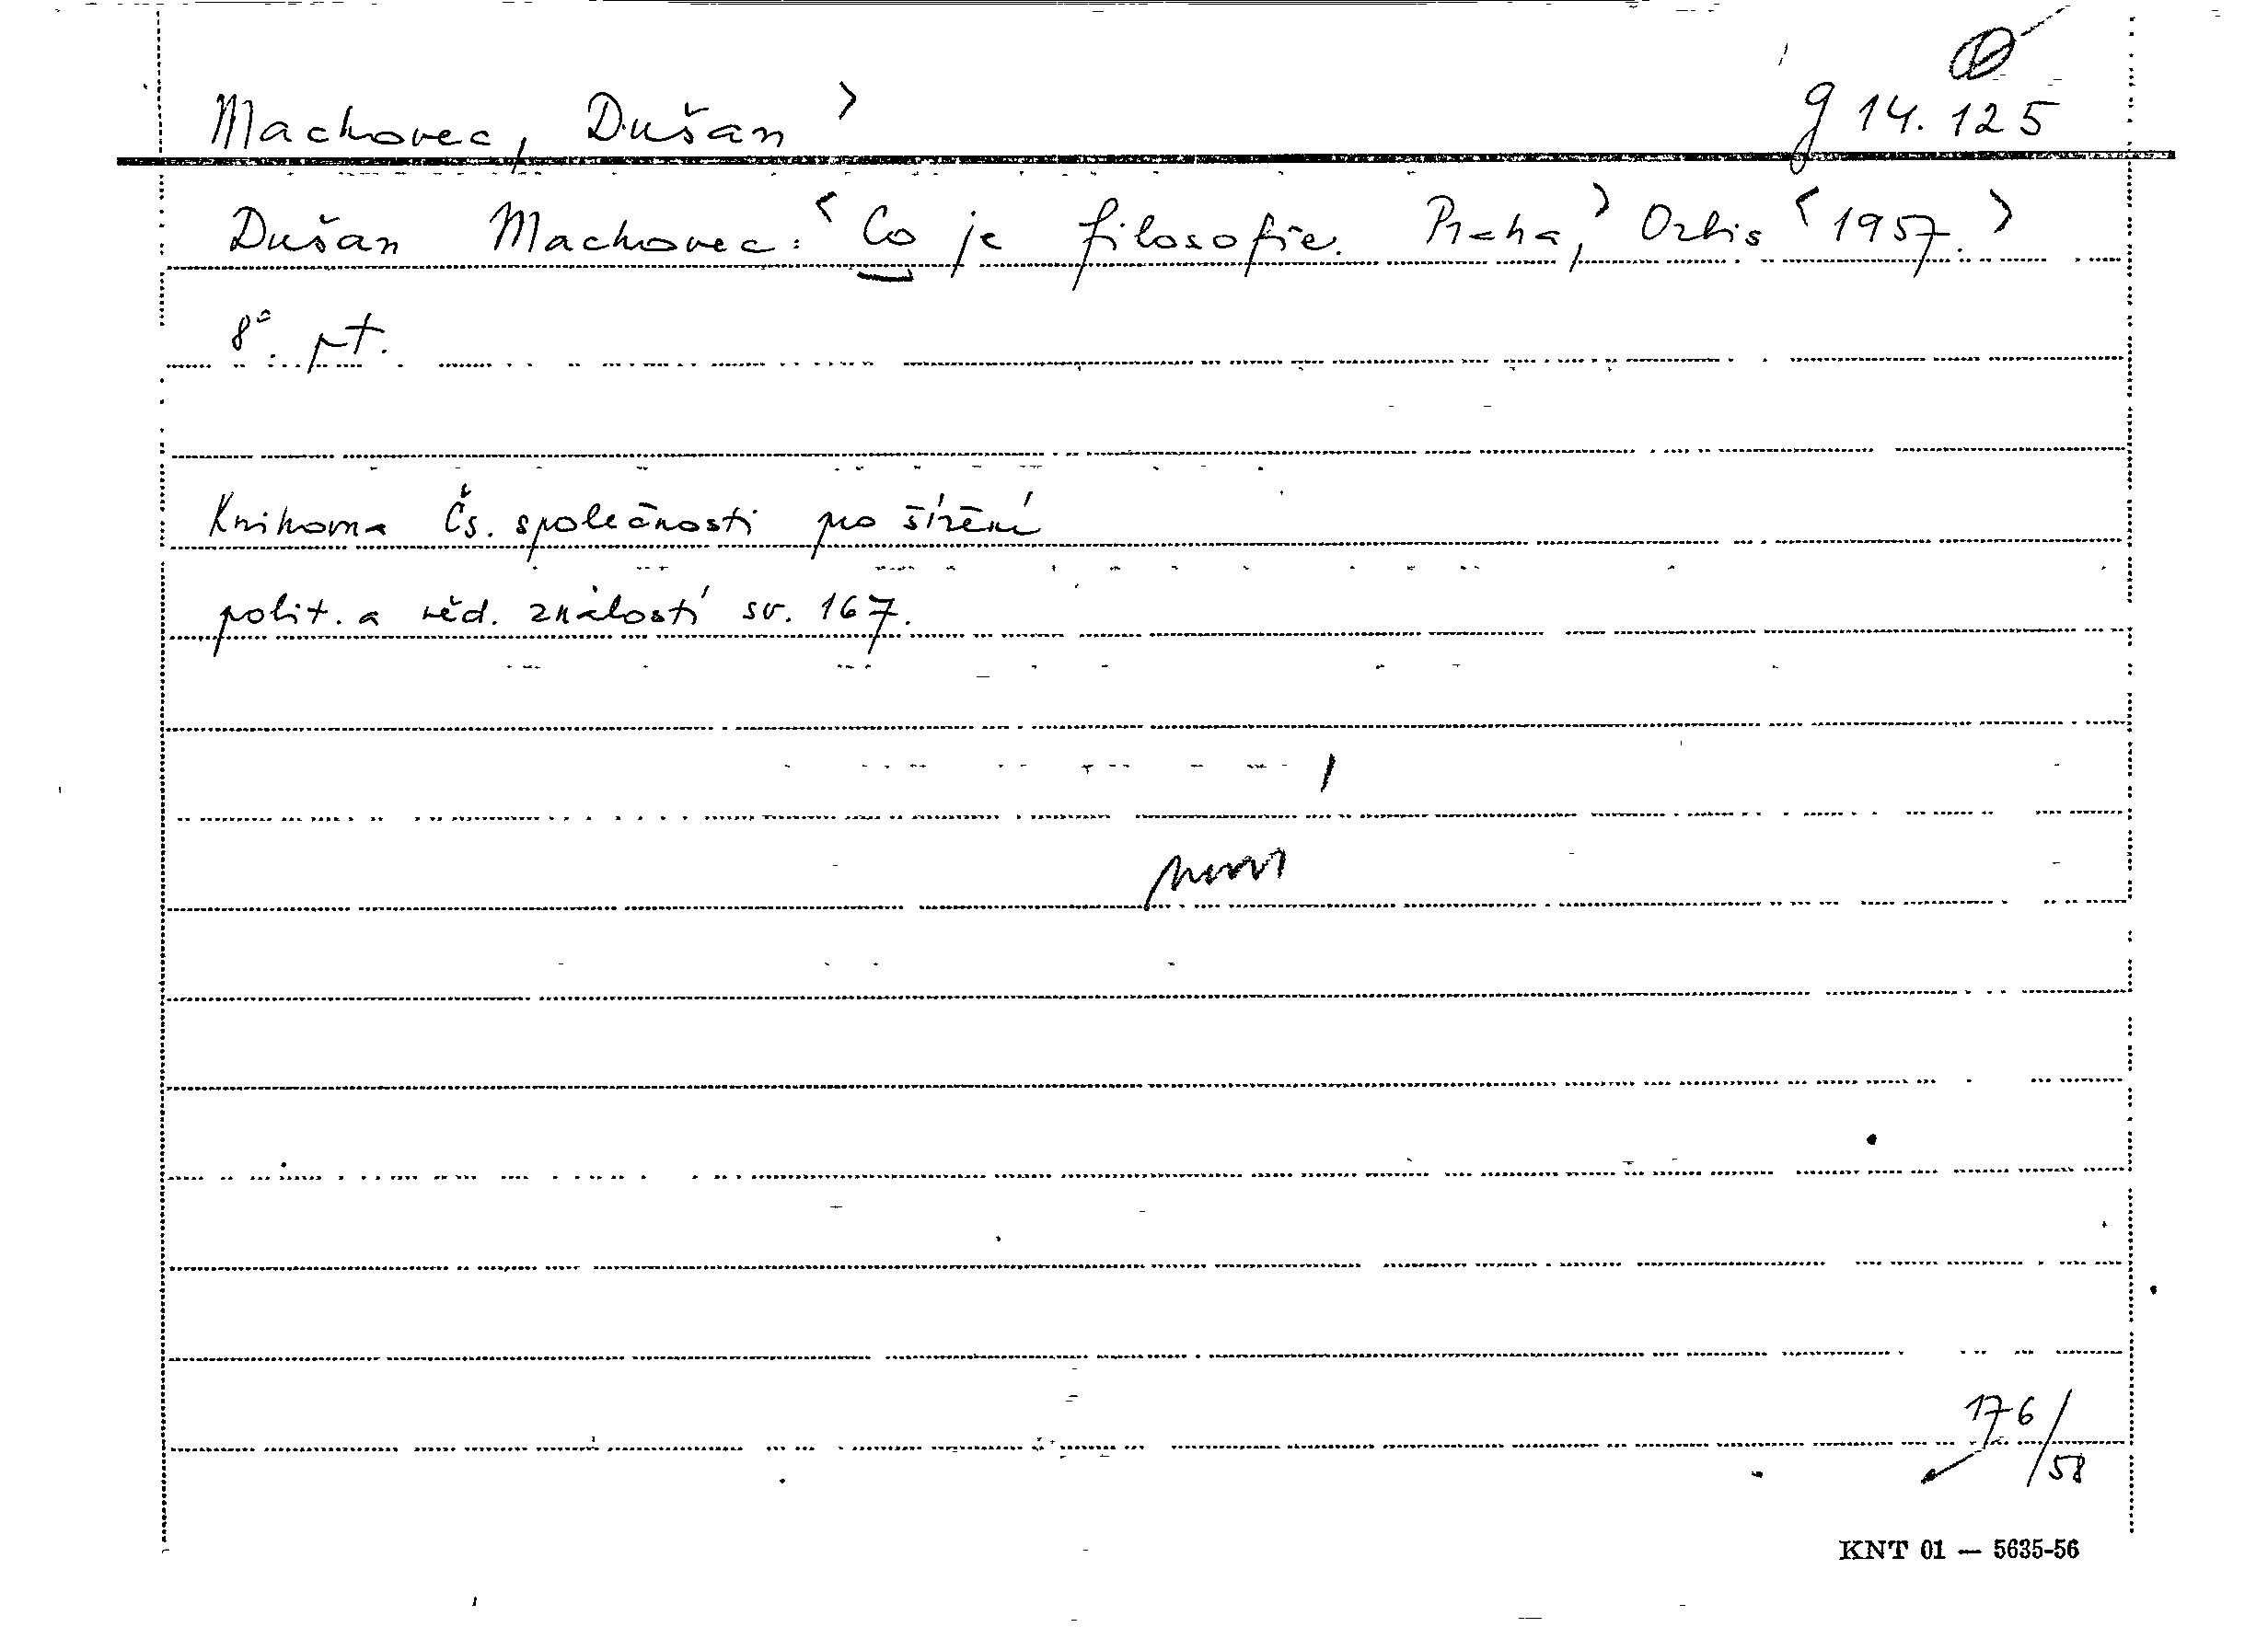 Machovec, Dušan > g 14.125
Dušan Machovec: <Co je filosofie. Praha,> Orbis <1957.>
8° pt.
Knihovna Čs. společnosti pro šíření
polit. a věd. znalostí sv. 167.
176/58
KNT 01 — 5635-56